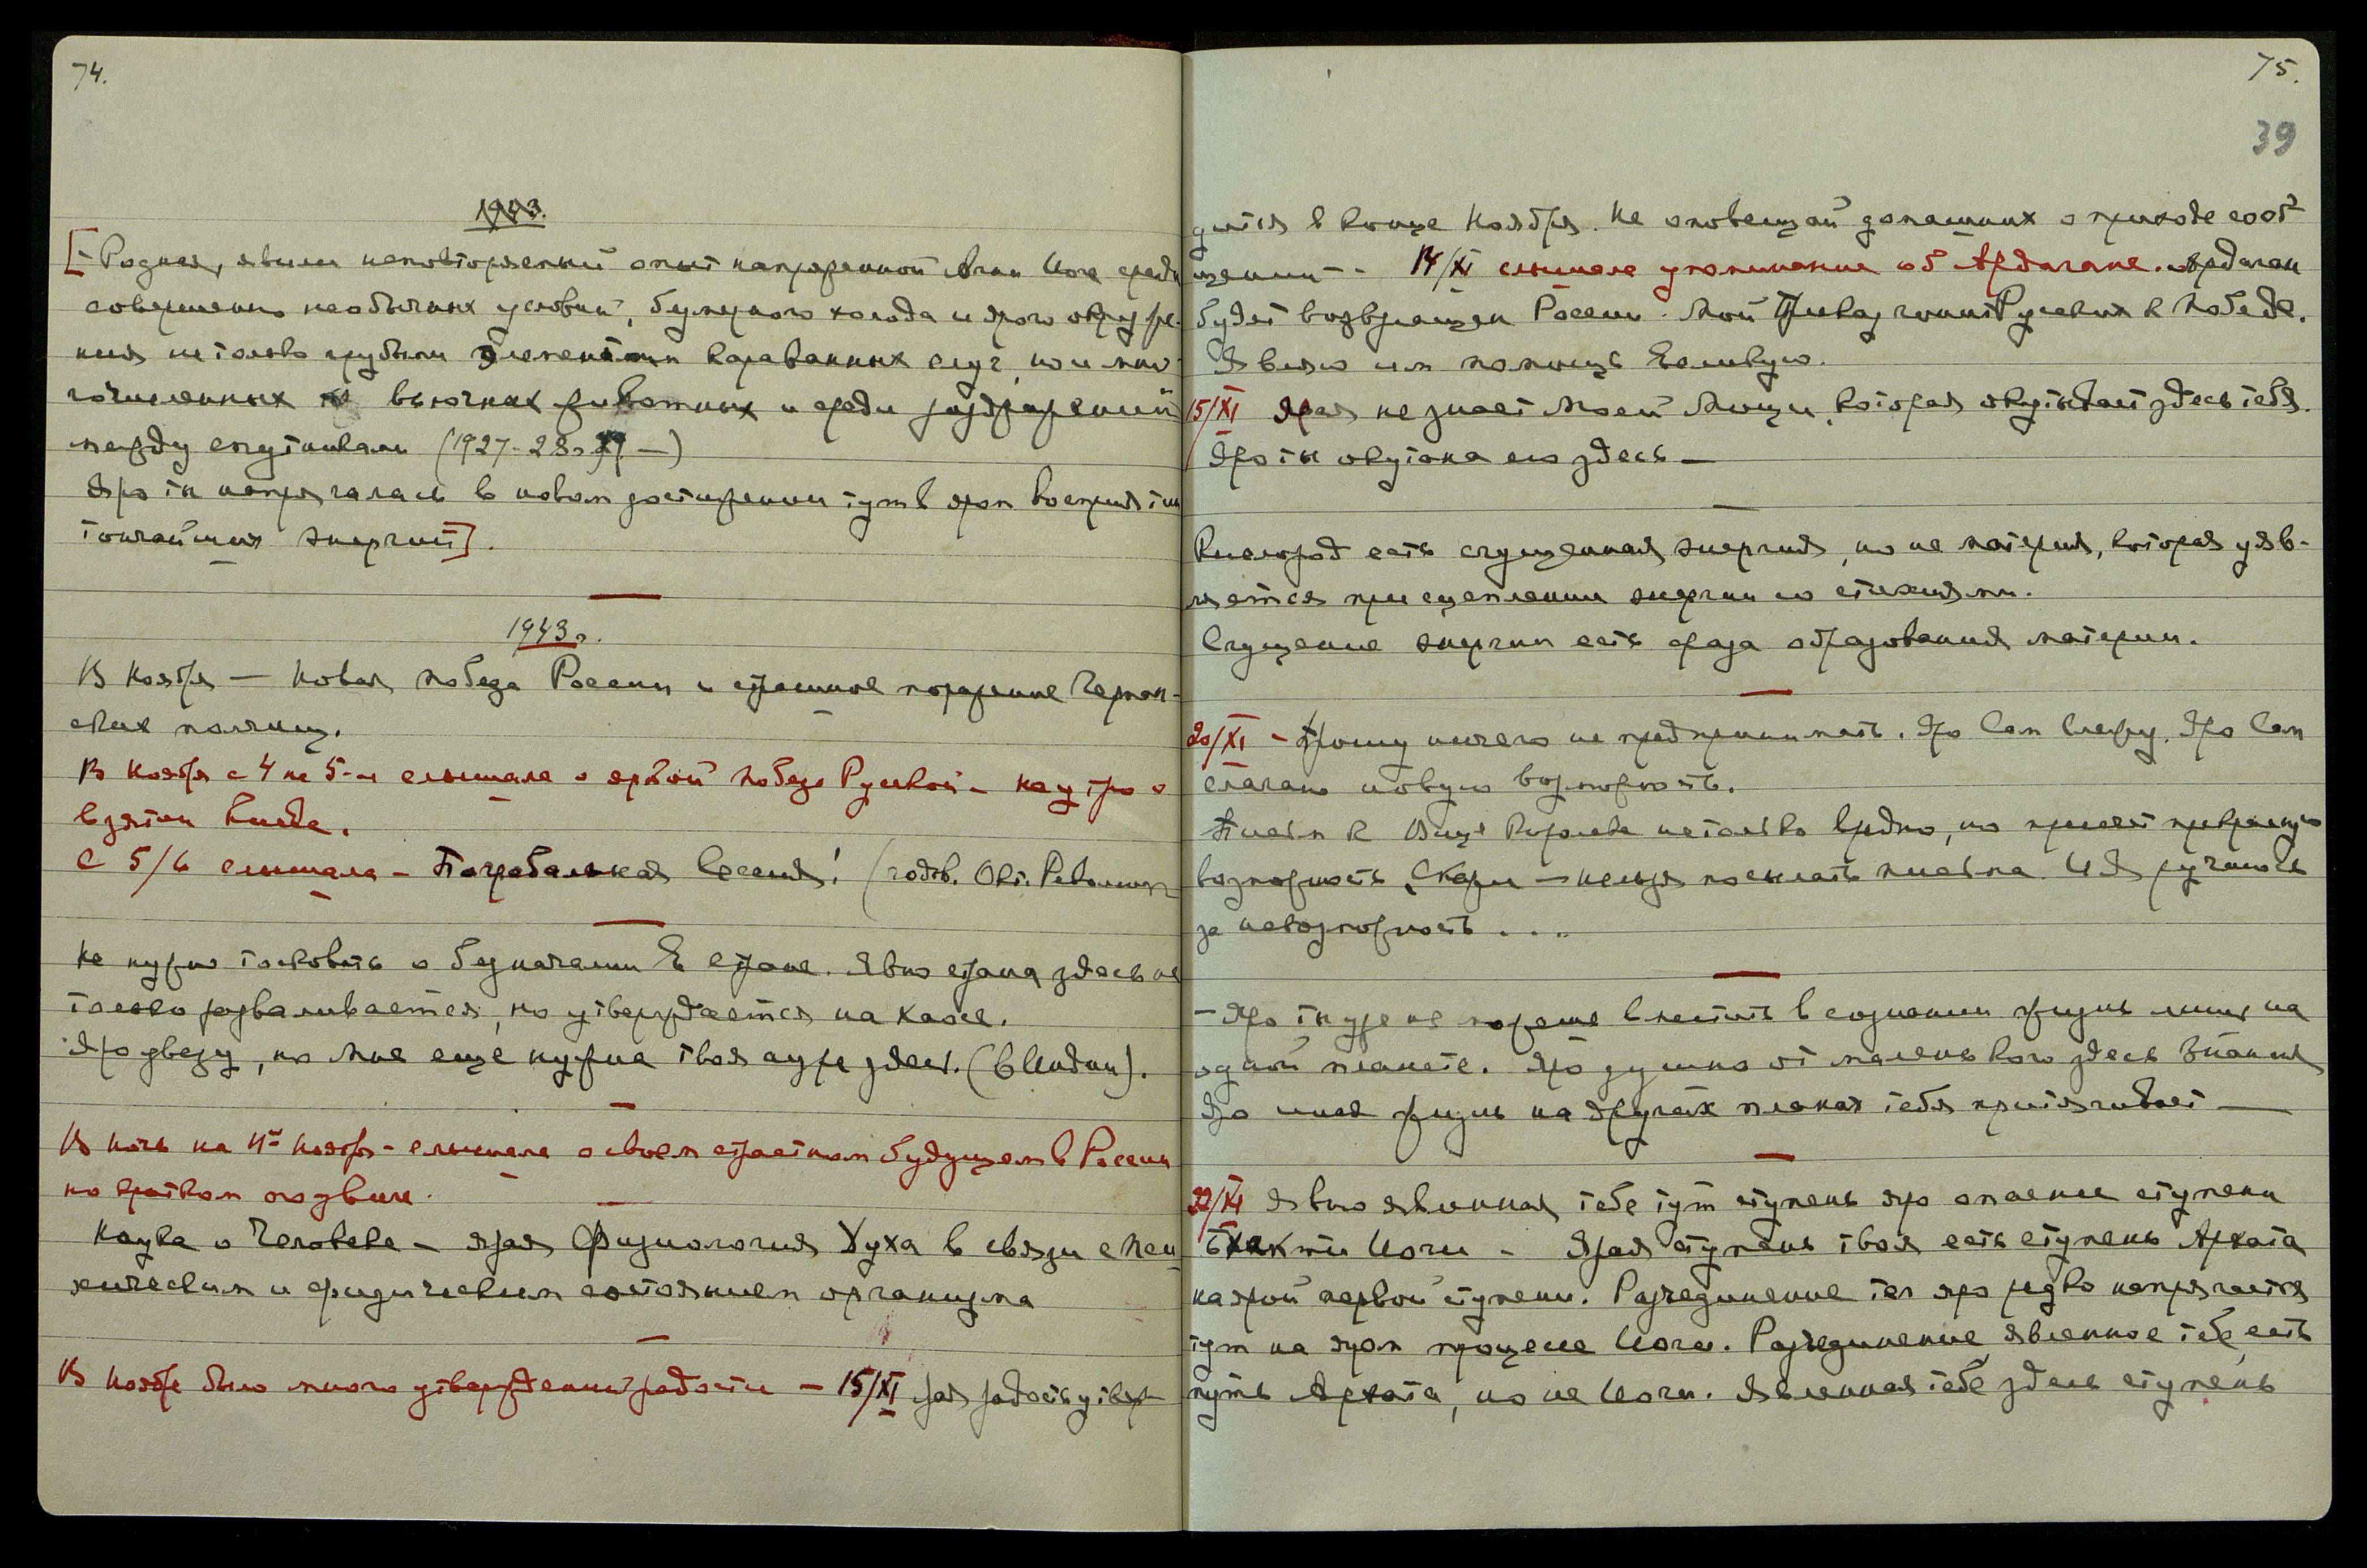 74.
1943.
[- Родная, явили неповторяемый опыт напряженной Агни Йоги среди
совершенно необычных условий, безмерного холода и ярого окруже-
ния не только грубыми элементами караванных слуг, но и мно-
гочисленных вьючных животных и среди раздражений
между спутниками (1927-28 г. —)
Яро ты напрягалась в новом достижении тут в яром восприятии
тончайших энергий].
1943 г.
В Ноябре — Новая победа России и страшное поражение Герман-
ских полчищ.
В Ноябре с 4 на 5-ое слышала о ярой победе Русской - на утро о
взятии Киева.
С 5/6 слышала - Пограбальная Россия! (годов. Окт. Революции
Не нужно тосковать о безначалии в стране. Явно страна здесь не
только разваливается, но утверждается на Хаосе.
Яро двезу, но Мне еще нужна твоя аура здесь. (в Индии).
В ночь на 11-ое Ноября - слышала о своем страстном будущем в России
но кратком подвиге.
Наука о Человеке - ярая Физиология Духа в связи с пси-
хическим и физическим состоянием организма
В Ноябре было много утверждений радости - 15/XI ярая радость утвер-
75.
39
дится в конце Ноября. Не оповещай домашних о приходе сооб-
щении - - 14/XI слышала упоминание об Ардагане. Ардаган
будет возвращен России. Мой Приказ гонит Русских к победе.
Являю им помощь Великую.
15/XI Ярая не знает Моей Мощи, которая окутывает здесь тебя.
Яро ты окутана ею здесь —
Кислород есть сгущенная энергия, но не материя, которая уяв-
ляется при сцеплении энергии со стихиями.
Сгущение энергии есть фаза образования материи.
20/XI - Прошу ничего не предпринимать. Яро Сам Слежу. Яро Сам
слагаю новую возможность.
Письмо к Вице Королеве не только вредно, но пресечет прекрасную
возможность. Скажи — нельзя посылать письма. И Я ручаюсь
за невозможность ....
- Яро ты уже не можешь вместить в сознании жизнь лишь на
одной планете. Яро душно от маленького здесь знания
Яро иная жизнь на других планах тебя притягивает —
22/XI Явно явленная тебе тут ступень яро опаснее ступени
Бхакти Йоги - Ярая ступень твоя есть ступень Архата
на ярой первой ступени. Разъединение тел яро редко напрягается
тут на яром процессе Йоги. Разъединение, явленное тебе, есть
путь Архата, но не Йоги. Явленная тебе здесь ступень